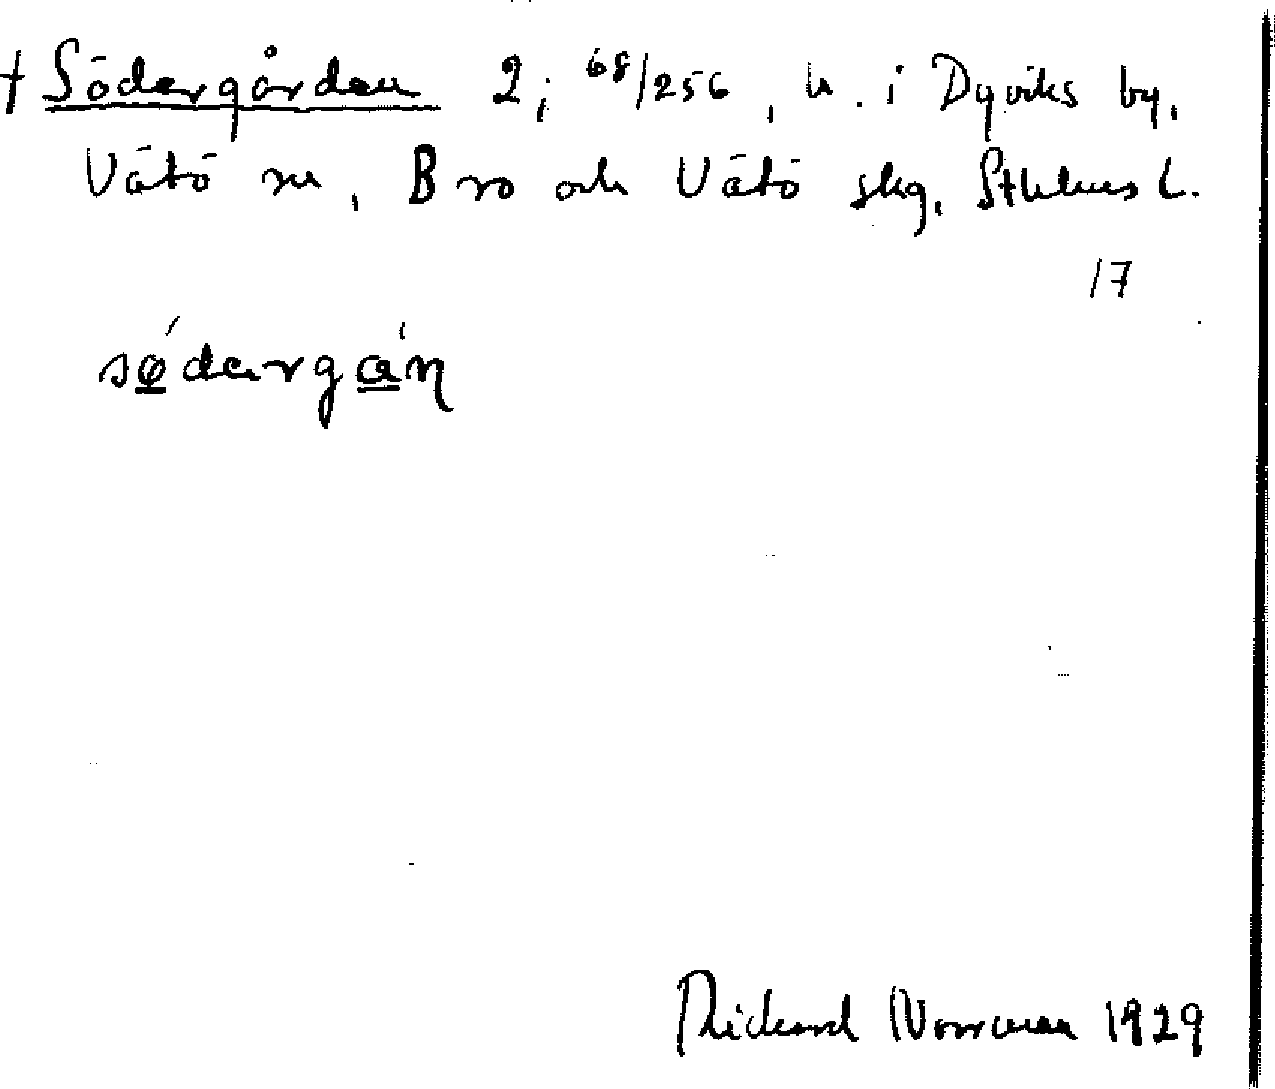 † Södergården 2; 68/256, h. i Dyviks by,
Vätö sn, Bro och Vätö skg, Sthlms L.
17
sødərgɑ́ṇ
Rickard Norrman 1929